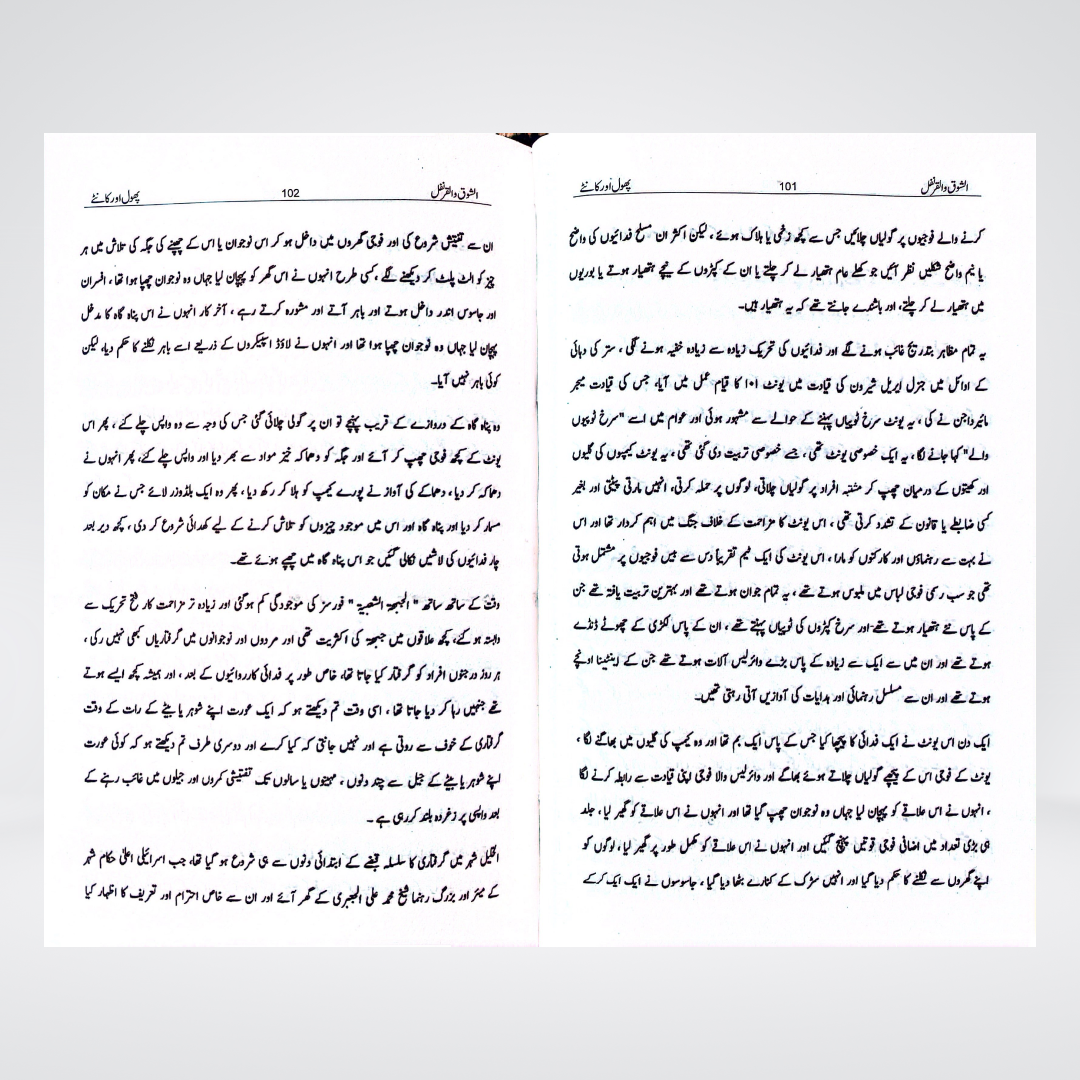 الشوق والقرنفل 101 پھول اور کانٹے
کرنے والے فوجیوں پر گولیاں چلائیں جس سے کچھ زخمی یا ہلاک ہوئے ، لیکن اکثر ان مسلح فدائیوں کی واضح
یا نیم واضح شکلیں نظر آئیں جو کھلے عام ہتھیار لے کر چلتے یا ان کے کپڑوں کے نیچے ہتھیار ہوتے یا بوریوں
میں ہتھیار لے کر چلتے، اور باشندے جانتے تھے کہ یہ ہتھیار ہیں۔
یہ تمام مظاہر بتدریج غائب ہونے لگے اور فدائیوں کی تحریک زیادہ سے زیادہ خفیہ ہونے لگی ، ستر کی دہائی
کے اوائل میں جنرل ایریل شیرون کی قیادت میں یونٹ ۱۰۱ کا قیام عمل میں آیا، جس کی قیادت میجر
مائیر داجن نے کی ، یہ یونٹ سرخ ٹوپیاں پہننے کے حوالے سے مشہور ہوئی اور عوام میں اسے "سرخ ٹوپیوں
والے" کہا جانے لگا، یہ ایک خصوصی یونٹ تھی ، جسے خصوصی تربیت دی گئی تھی ، یہ یونٹ کیمپوں کی گلیوں
اور کھیتوں کے درمیان چھپ کر مشتبہ افراد پر گولیاں چلاتی، لوگوں پر حملہ کرتی، انہیں مارتی پیٹتی اور بغیر
کسی ضابطے یا قانون کے تشدد کرتی تھی ، اس یونٹ کا مزاحمت کے خلاف جنگ میں اہم کردار تھا اور اس
نے بہت سے رہنماؤں اور کارکنوں کو مارا ، اس یونٹ کی ایک ٹیم تقریباً دس سے بیس فوجیوں پر مشتمل ہوتی
تھی جو سب رسمی فوجی لباس میں ملبوس ہوتے تھے ، یہ تمام جوان ہوتے تھے اور بہترین تربیت یافتہ تھے جن
کے پاس نئے ہتھیار ہوتے تھے اور سرخ کپڑوں کی ٹوپیاں پہنتے تھے ، ان کے پاس لکڑی کے چھوٹے ڈنڈے
ہوتے تھے اور ان میں سے ایک سے زیادہ کے پاس بڑے وائرلیس آلات ہوتے تھے جن کے اینٹینا اونچے
ہوتے تھے اور ان سے مسلسل رہنمائی اور ہدایات کی آوازیں آتی رہتی تھیں۔
ایک دن اس یونٹ نے ایک فدائی کا پیچھا کیا جس کے پاس ایک بم تھا اور وہ کیمپ کی گلیوں میں بھاگنے لگا ،
یونٹ کے فوجی اس کے پیچھے گولیاں چلاتے ہوئے بھاگے اور وائرلیس والا فوجی اپنی قیادت سے رابطہ کرنے لگا
، انہوں نے اس علاقے کو پہچان لیا جہاں وہ نوجوان چھپ گیا تھا اور انہوں نے اس علاقے کو گھیر لیا ، جلد
ہی بڑی تعداد میں اضافی فوجی قوتیں پہنچ گئیں اور انہوں نے اس علاقے کو مکمل طور پر گھیر لیا ، لوگوں کو
اپنے گھروں سے نکلنے کا حکم دیا گیا اور انہیں سڑک کے کنارے بٹھا دیا گیا ، جاسوسوں نے ایک ایک کرکے
الشوق والقرنفل 102 پھول اور کانٹے
ان سے تفتیش شروع کی اور فوجی گھروں میں داخل ہو کر اس نوجوان یا اس کے چھپنے کی جگہ کی تلاش میں ہر
چیز کو الٹ پلٹ کر دیکھنے لگے ، کسی طرح انہوں نے اس گھر کو پہچان لیا جہاں وہ نوجوان چھپا ہوا تھا ، افسران
اور جاسوس اندر داخل ہوتے اور باہر آتے اور مشورہ کرتے رہے ، آخر کار انہوں نے اس پناہ گاہ کا مدخل
پہچان لیا جہاں وہ نوجوان چھپا ہوا تھا اور انہوں نے لاؤڈ اسپیکروں کے ذریعے اسے باہر نکلنے کا حکم دیا، لیکن
کوئی باہر نہیں آیا۔
وہ پناہ گاہ کے دروازے کے قریب پہنچے تو ان پر گولی چلائی گئی جس کی وجہ سے وہ واپس چلے گئے ، پھر اس
یونٹ کے کچھ فوجی چھپ کر آئے اور جگہ کو دھماکہ خیز مواد سے بھر دیا اور واپس چلے گئے، پھر انہوں نے
دھماکہ کر دیا ، دھماکے کی آواز نے پورے کیمپ کو ہلا کر رکھ دیا ، پھر وہ ایک بلڈوزر لائے جس نے مکان کو
مسمار کر دیا اور پناہ گاہ اور اس میں موجود چیزوں کو تلاش کرنے کے لیے کھدائی شروع کر دی ، کچھ دیر بعد
چار فدائیوں کی لاشیں نکالی گئیں جو اس پناہ گاہ میں چھپے ہوئے تھے۔
وقت کے ساتھ ساتھ " الجبھۃ الشعبیۃ " فورسز کی موجودگی کم ہو گئی اور زیادہ تر مزاحمت کار فتح تحریک سے
وابستہ ہو گئے، کچھ علاقوں میں جبھۃ کی اکثریت تھی اور مردوں اور نوجوانوں میں گرفتاریاں کبھی نہیں رکی ،
ہر روز درجنوں افراد کو گرفتار کیا جاتا تھا، خاص طور پر فدائی کارروائیوں کے بعد ، اور ہمیشہ کچھ ایسے ہوتے
تھے جنہیں رہا کر دیا جاتا تھا ، اسی وقت تم دیکھتے ہو کہ ایک عورت اپنے شوہر یا بیٹے کے رات کے وقت
گرفتاری کے خوف سے روتی ہے اور نہیں جانتی کہ کیا کرے اور دوسری طرف تم دیکھتے ہو کہ کوئی عورت
اپنے شوہر یا بیٹے کے جیل سے چند دنوں ، مہینوں یا سالوں تک تفتیشی کمروں اور جیلوں میں غائب رہنے کے
بعد واپسی پر زغردہ بلند کر رہی ہے ۔
الخلیل شہر میں گرفتاری کا سلسلہ قبضے کے ابتدائی دنوں سے ہی شروع ہو گیا تھا، جب اسرائیلی اعلیٰ حکام شہر
کے میئر اور بزرگ رہنما شیخ محمد علی الجعبری کے گھر آئے اور ان سے خاص احترام اور تعریف کا اظہار کیا